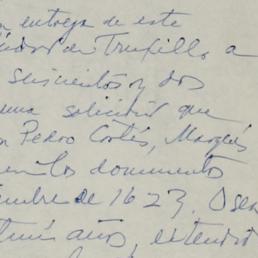 n entrega de este
de Trujillo a
seiscientos y dos
una solicitud que
n Pedro Cortés, Marqués
en los documentos
embre de 1623. O sea
años, extendió